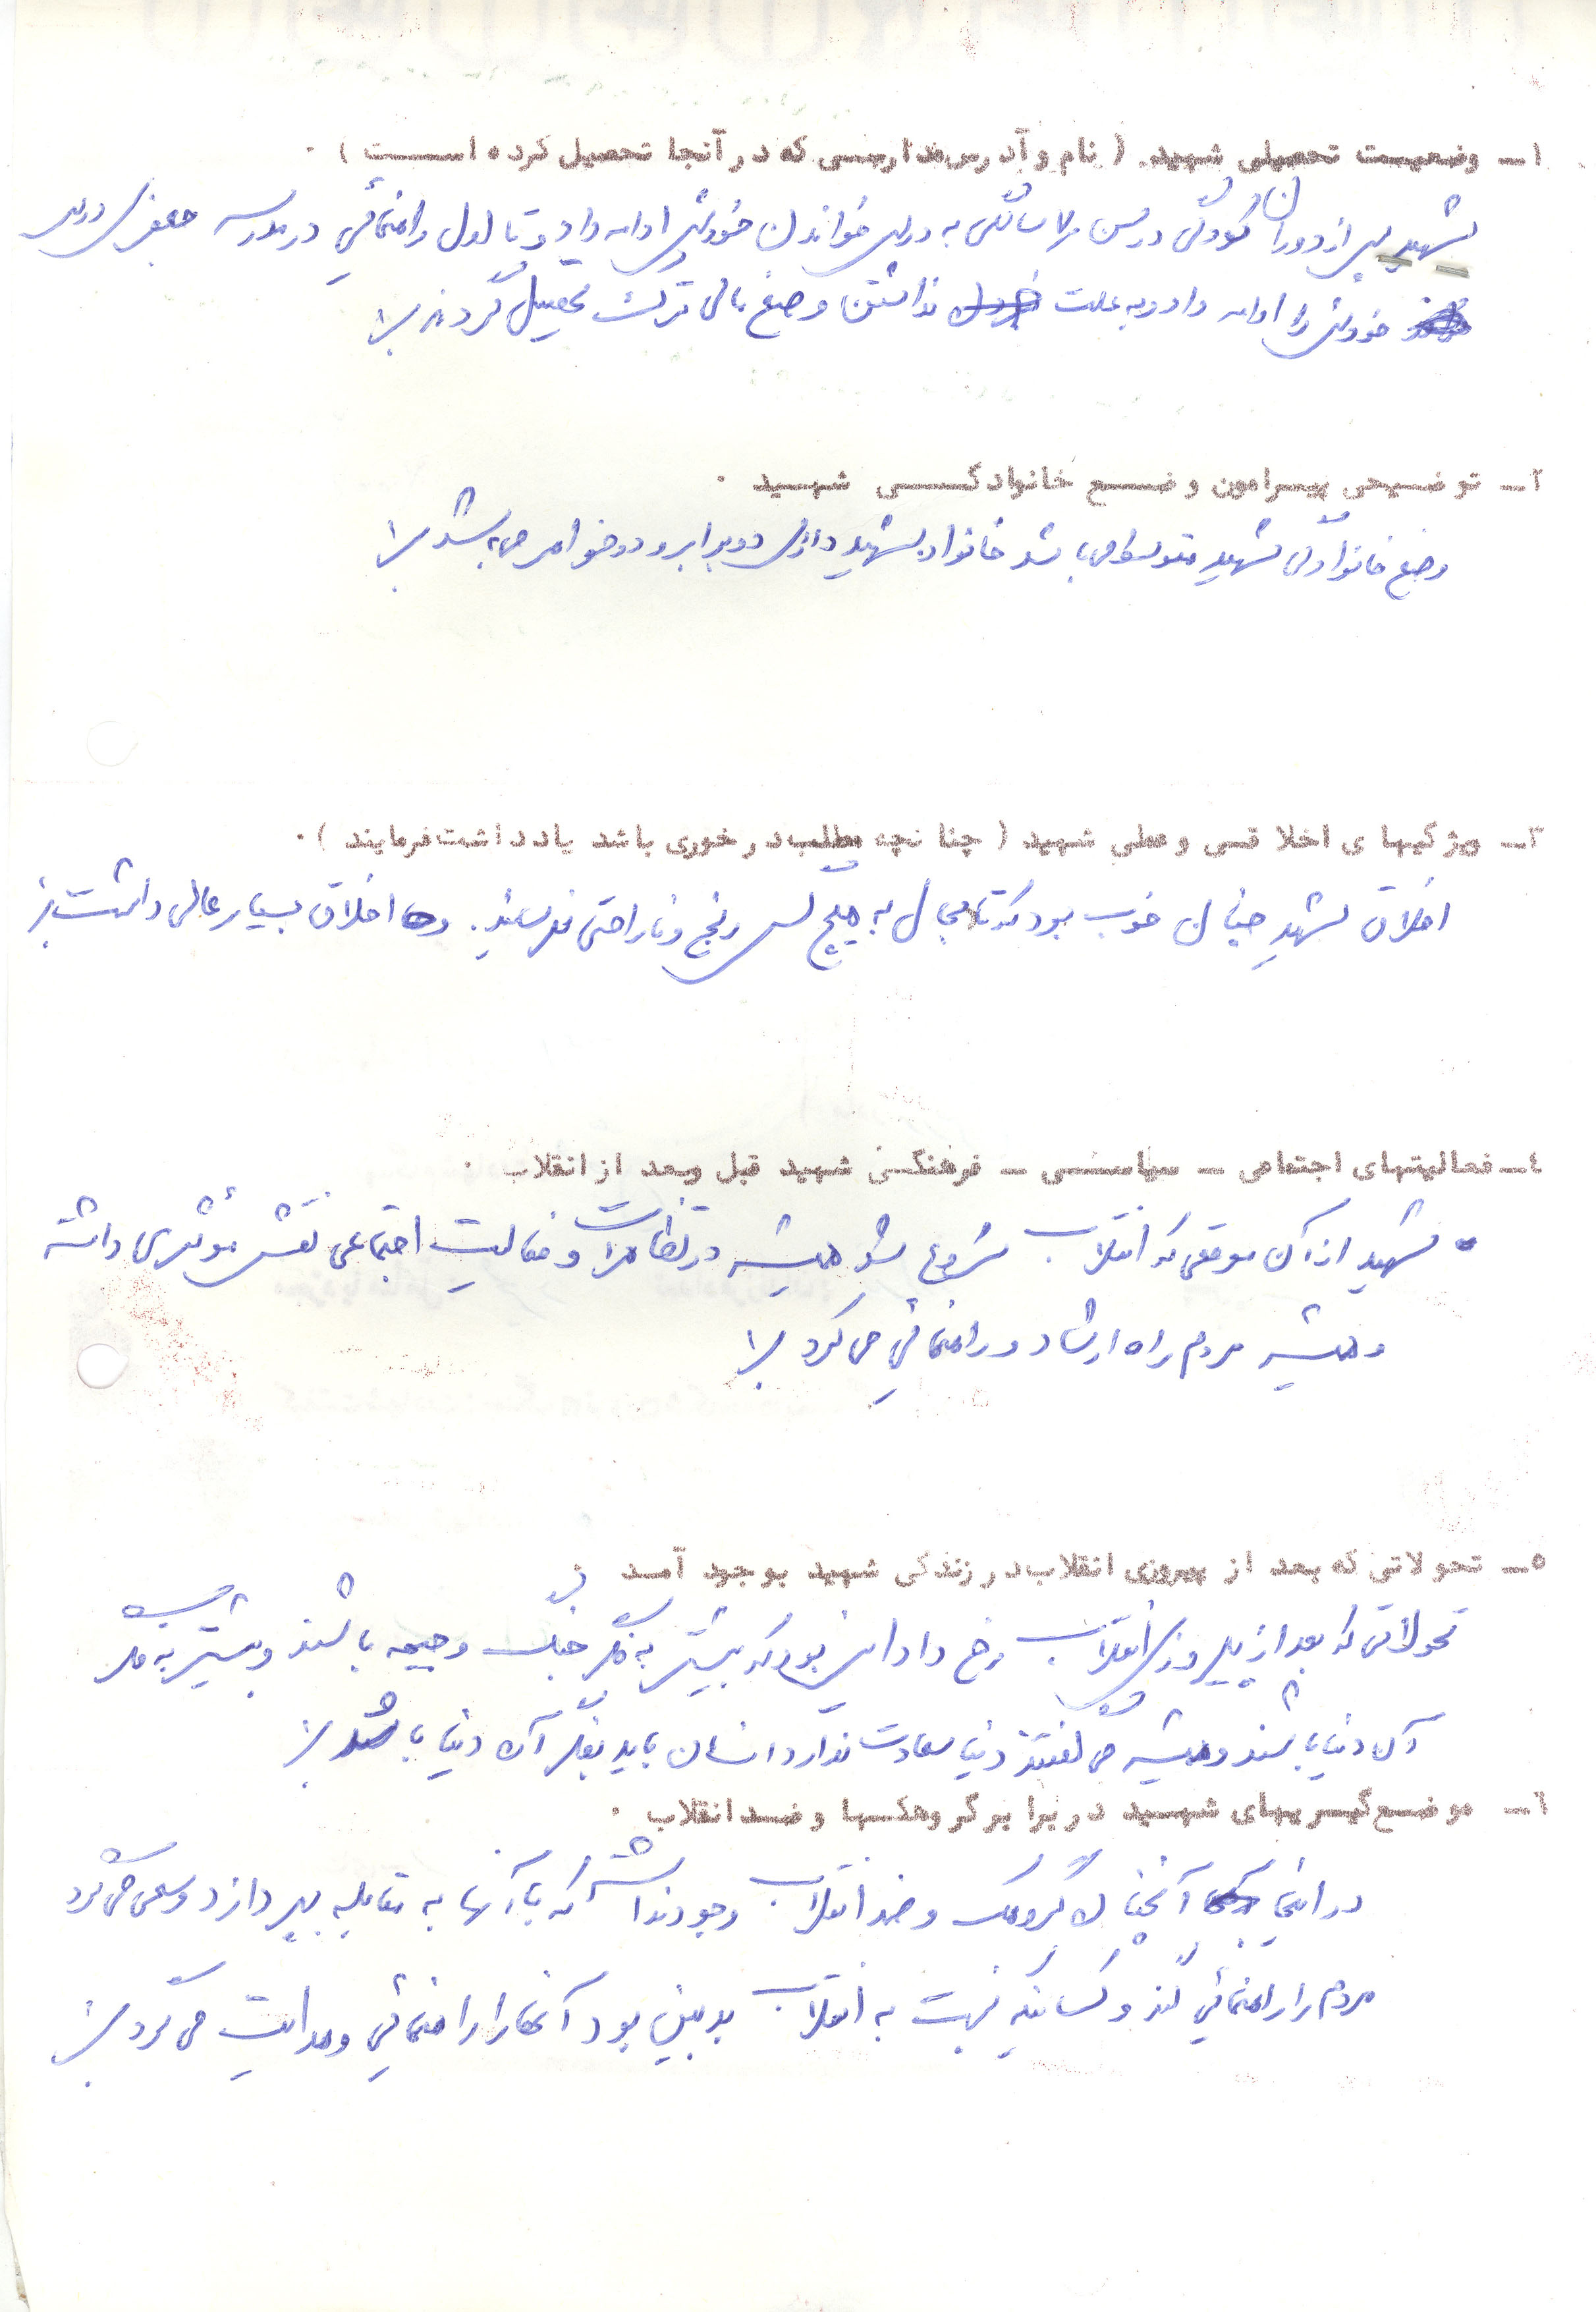 ۱ـ وضعیت تحصیلی شهید. (نام و آدرس مدارسی که در آنجا تحصیل کرده است).
شهید پس از دوران کودکی در سن ۷ سالگی به درس خواندن خودش ادامه داد و تا اول راهنمائی در مدرسه جعفری درس
خودش را ادامه داد و به علت نداشتن وضع مالی ترک تحصیل کردند
۲ـ توضیحی پیرامون وضع خانوادگی شهید.
وضع خانوادگی شهید متوسط می باشد خانواده شهید دارای دو برابر و دو خواهر می به شد
۳ـ ویژگیهای اخلاقی و عملی شهید (چنانچه مطلب در خوری باشد یادداشت فرمایند).
اخلاق شهید چنان خوب بود که تا بحال به هیچ کس رنج و ناراحتی نفرساند. و اخلاق بسیار عالی داشت
٤ـ فعالیتهای اجتماعی ـ سیاسی ـ فرهنگی شهید قبل و بعد از انقلاب.
شهید از آن موقعی که انقلاب شروع شد همیشه در تظاهرات و فعالیت اجتماعی نقش موثری داشته
و همیشه مردم را ارشاد و راهنمائی می کرد
۵ـ تحولاتی که بعد از پیروزی انقلاب در زندگی شهید بوجود آمد
تحولاتی که بعد از پیروزی انقلاب رخ داد این بود که بیشتر به فکر جنگ و جبهه باشند و بیشتر به فکر
آن دنیا باشند و همیشه می گفتند دنیا سعادت ندارد انسان باید بفکر آن دنیا باشد
٦ـ موضع گیریهای شهید در برابر گروهکها و ضد انقلاب.
در اینجا آنچنان گروهک و ضد انقلاب وجود نداشت که با آنها به مقابله بپردازد و سعی می کرد
مردم را راهنمائی کند و کسانیکه نسبت به انقلاب بدبین بود آنها را راهنمائی و هدایت می کرد